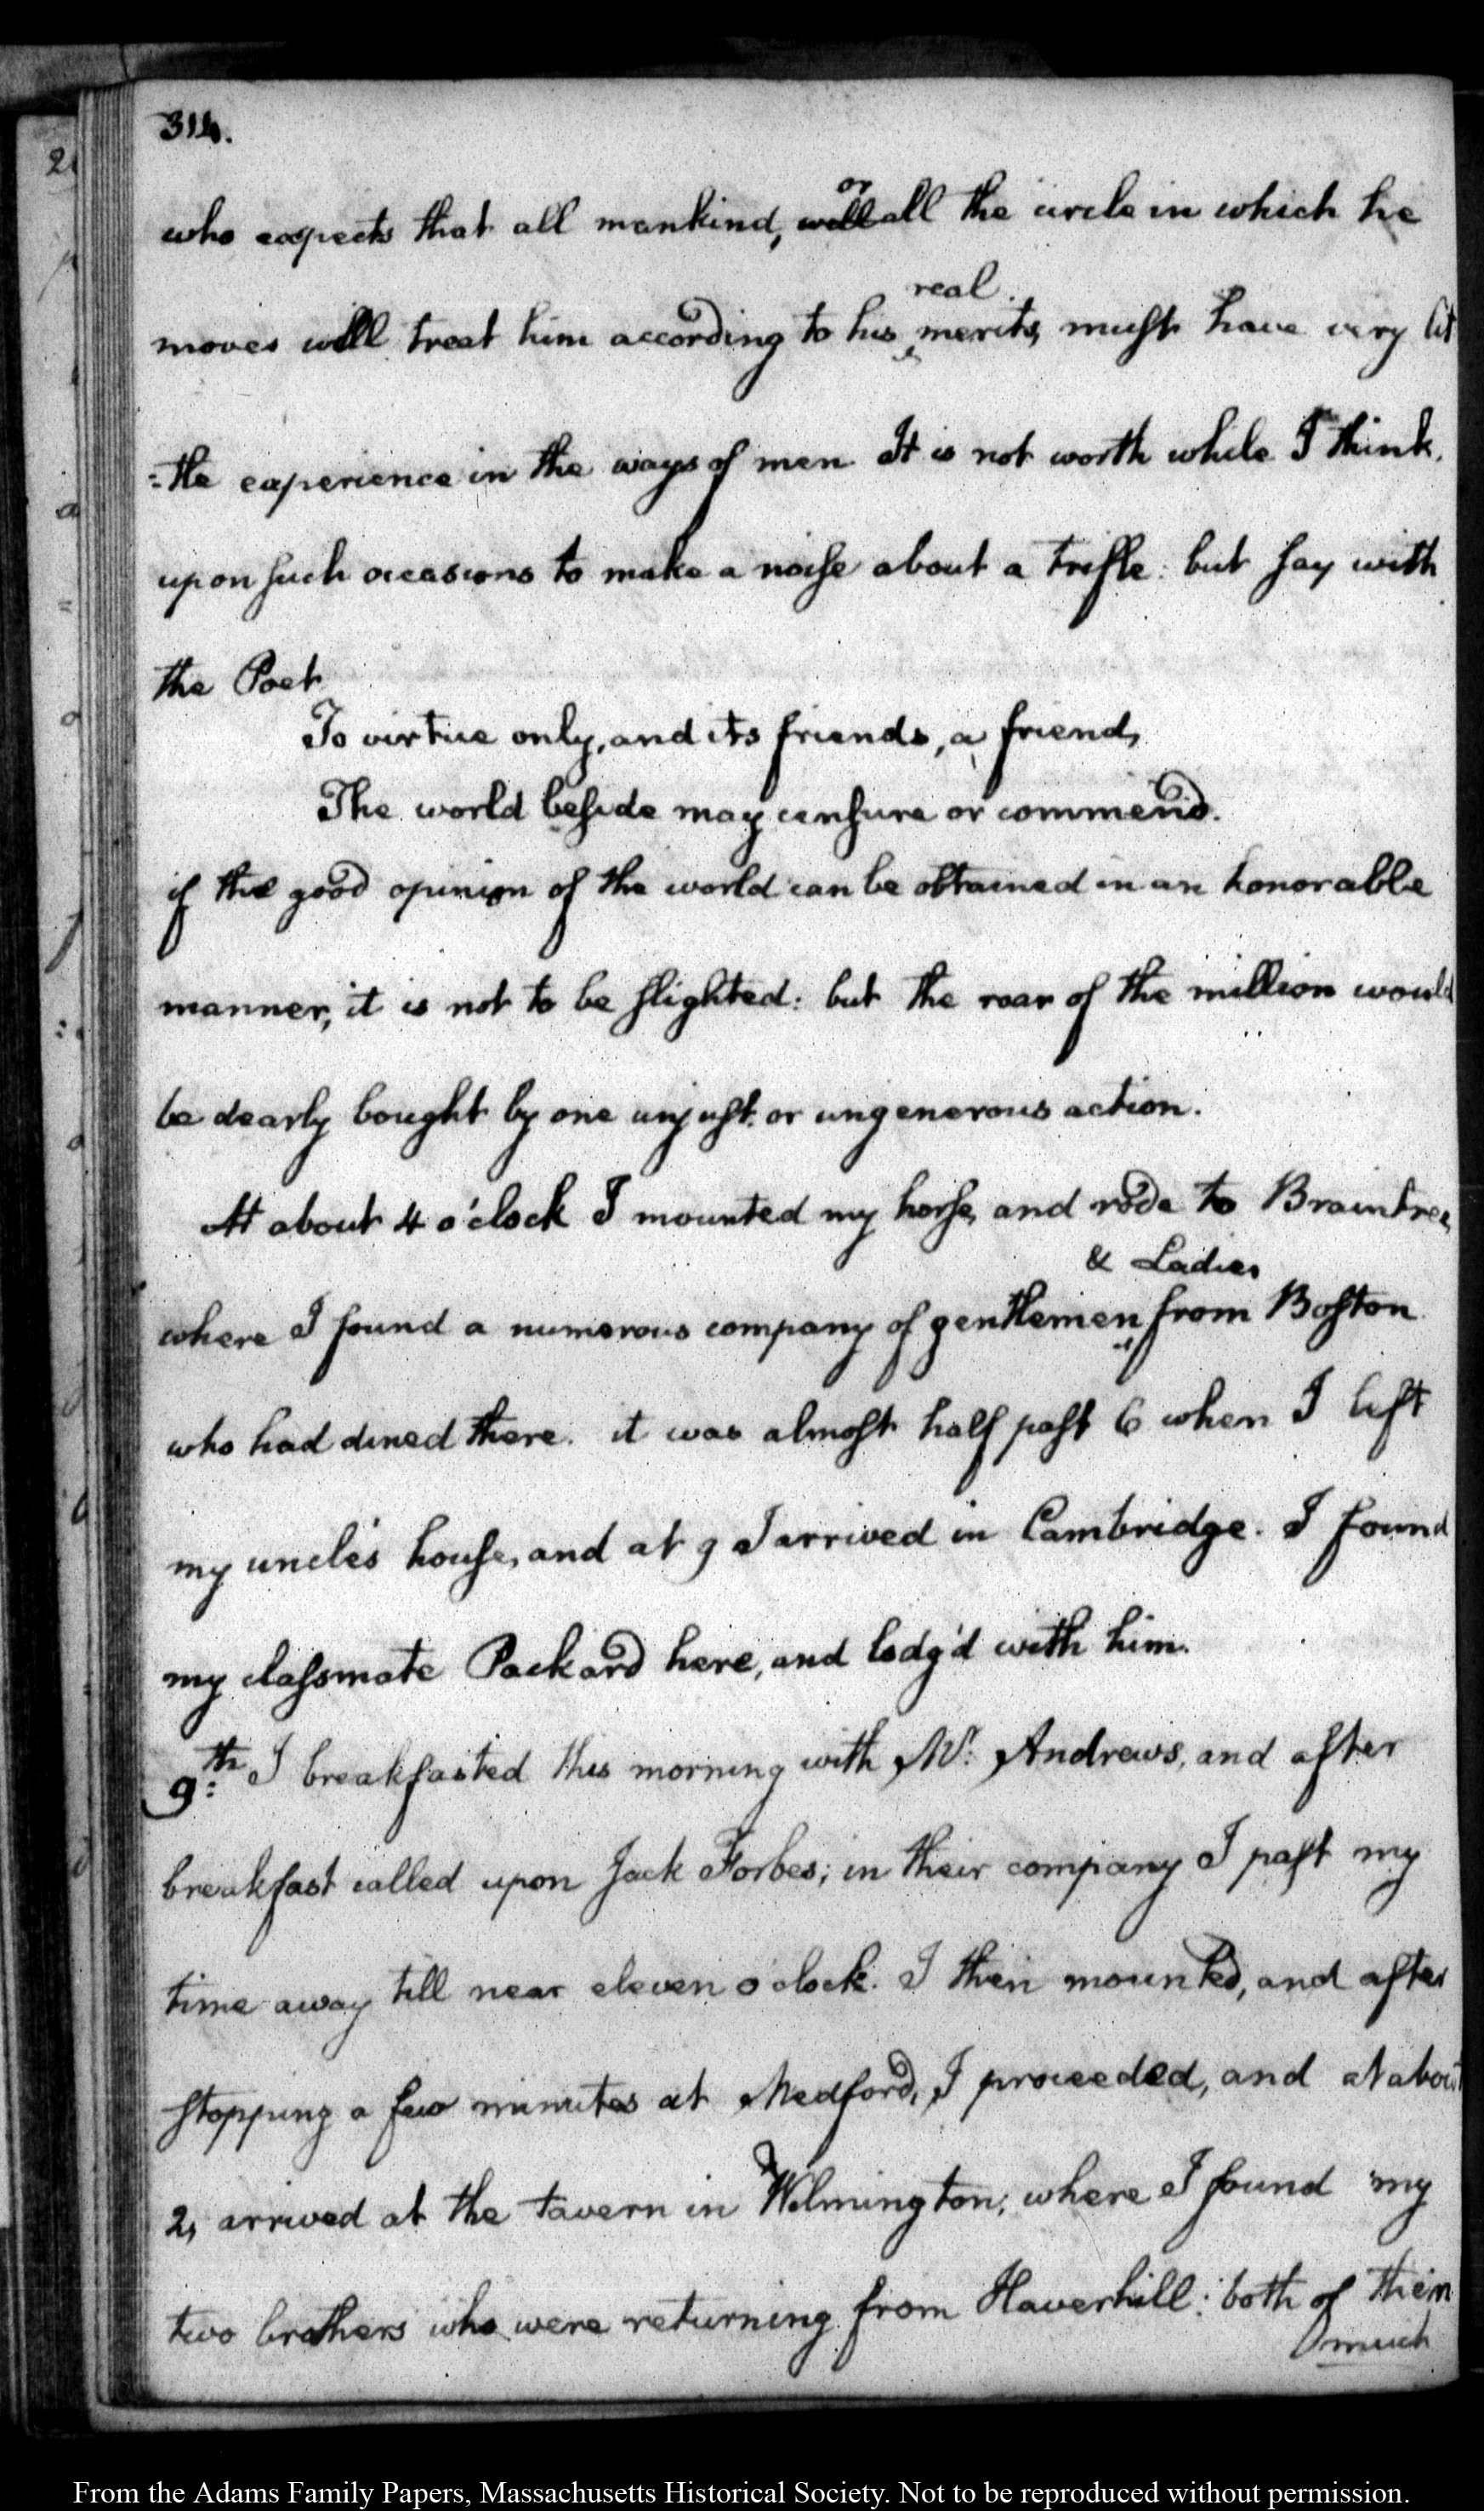 314.
who expects that all mankind, will or all the circle in which he
moves will treat him according to his real merits, must have very lit
=tle experience in the ways of men. It is not worth while I think,
upon such occasions to make a noise about a trifle: but say with
the Poet
To virtue only, and its friends, a friend,
The world beside may censure or commend.
if the good opinion of the world can be obtained in an honorable
manner, it is not to be slighted: but the roar of the million would
be dearly bought by one unjust or ungenerous action.
At about 4 o'clock I mounted my horse, and rode to Braintree,
where I found a numerous company of gentlemen & Ladies from Boston
who had dined there. it was almost half past 6 when I left
my uncle's house, and at 9 I arrived in Cambridge. I found
my classmate Packard here, and lodg'd with him.
9:th I breakfasted this morning with Mr: Andrews, and after
breakfast called upon Jack Forbes; in their company I past my
time away till near eleven o'clock. I then mounted, and after
stopping a few minutes at Medford, I proceeded, and at about
2, arrived at the tavern in Wilmington; where I found my
two brothers who were returning from Haverhill: both of them
much
From the Adams Family Papers, Massachusetts Historical Society. Not to be reproduced without permission.